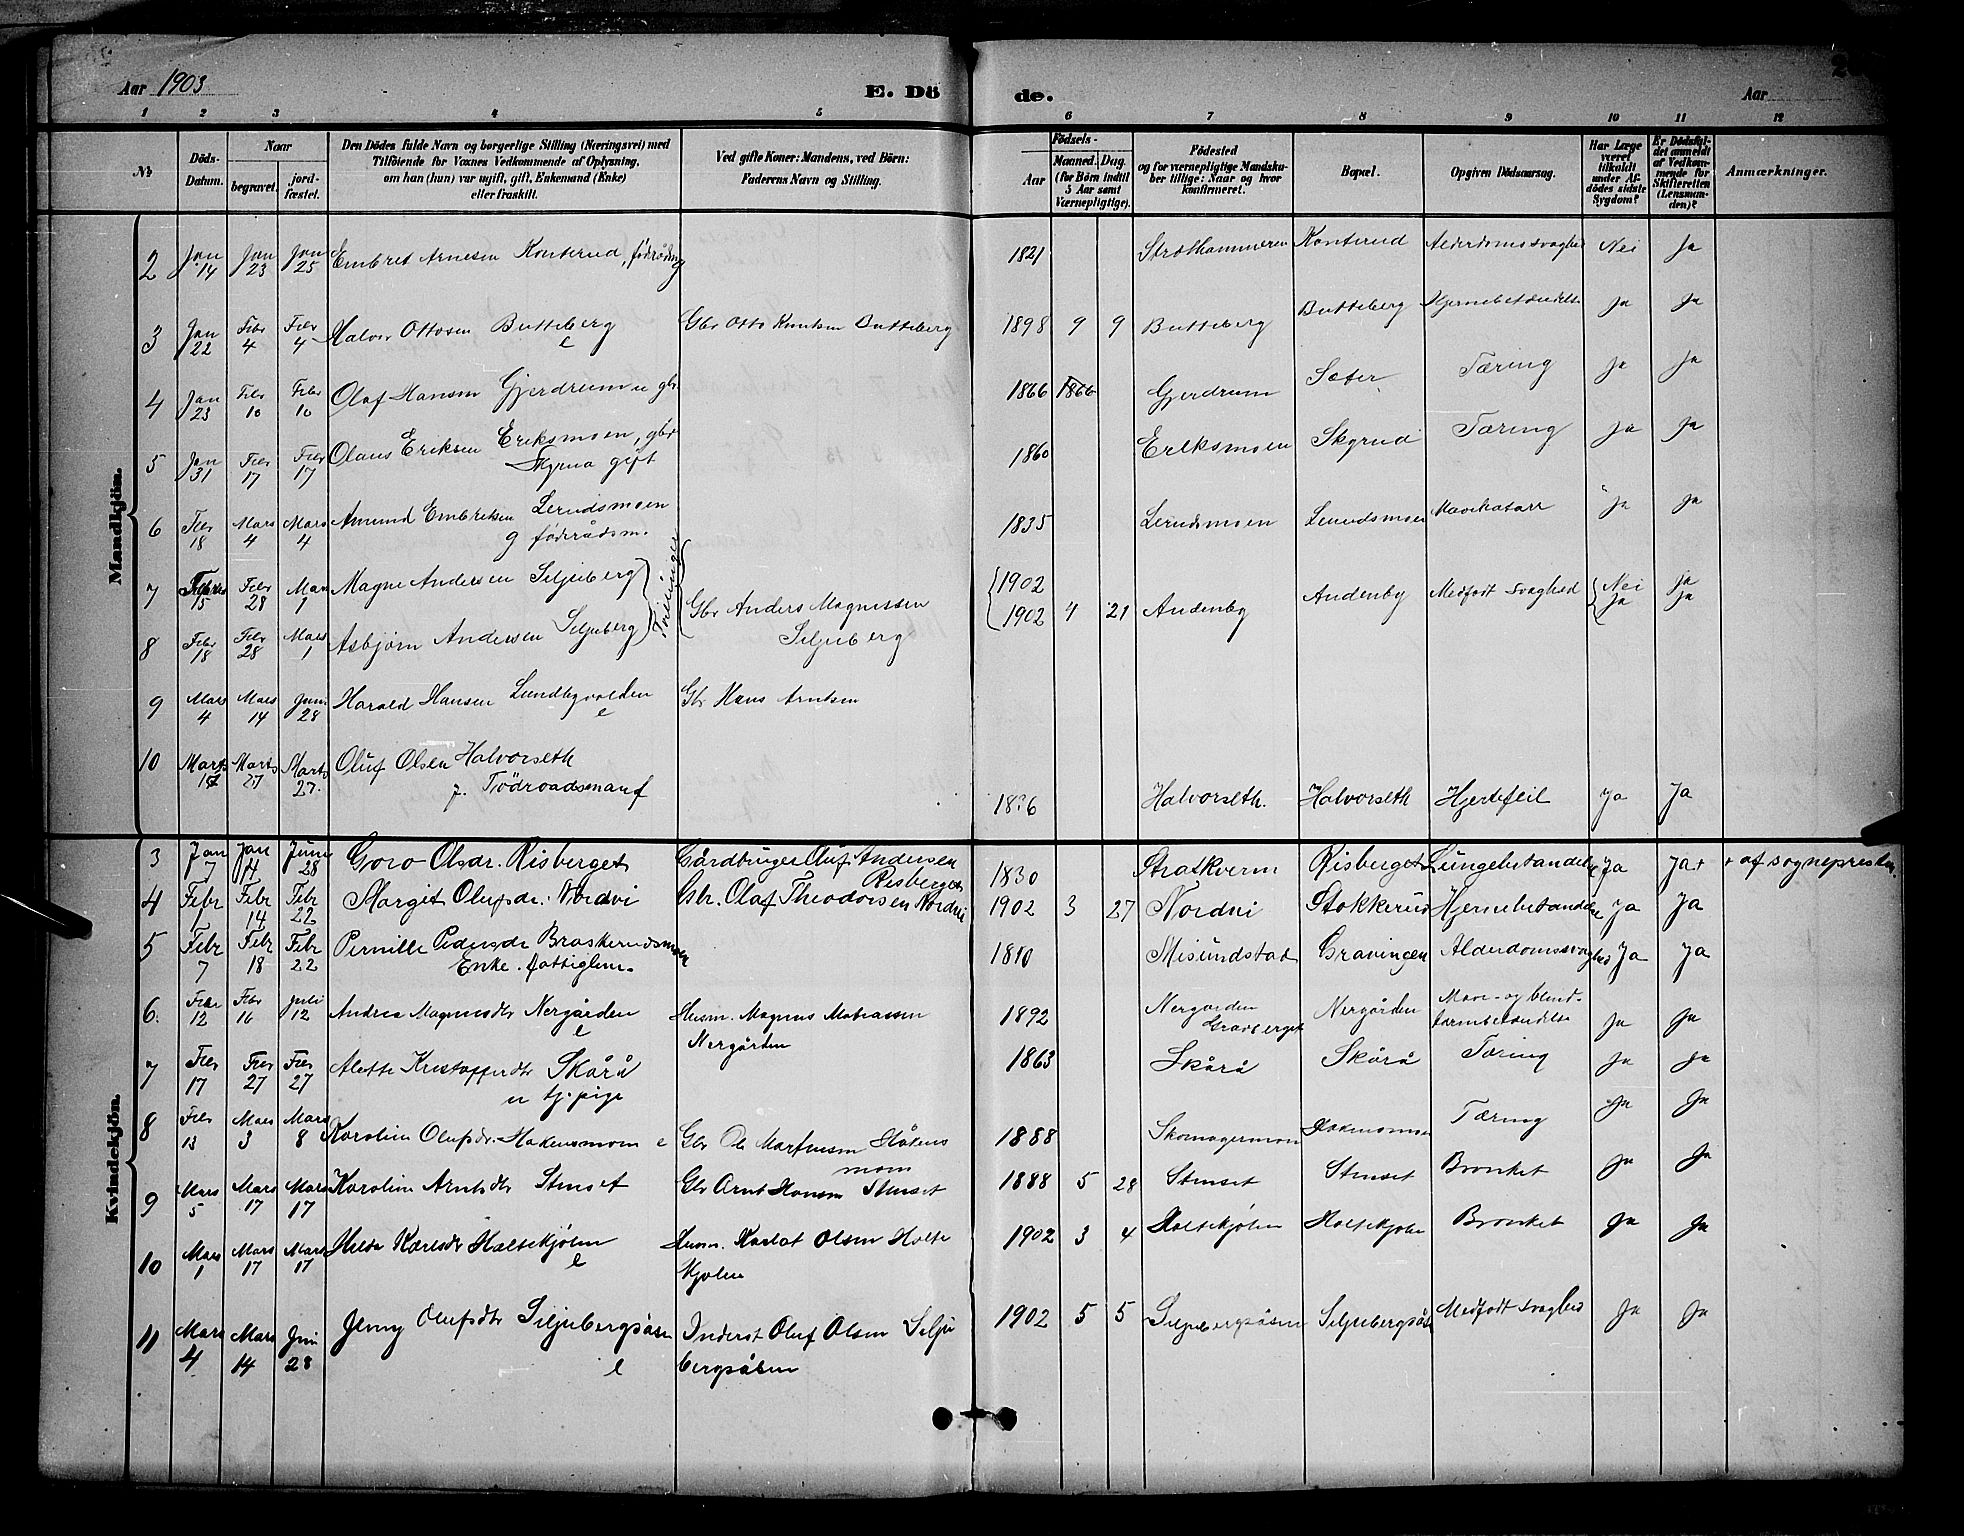 Aar 1903 E. Dö de. Aar
1 2 3 4 5 6 7 8 9 10 11 12
№ Döds-Datum. Naar begravet. jordfæstet. Den Dödes fulde Navn og borgerlige Stilling (Næringsvei) med Tilföiende for Voxnes Vedkommende af Oplysning, om han (hun) var ugift, gift, Enkemand (Enke) eller fraskilt. Ved gifte Koner: Mandens, ved Börn: Faderens Navn og Stilling. Födsels- Aar Maaned. Dag. (for Börn indtil 5 Aar samt Værnepligtige). Födested og for værnepligtige Mandskaber tillige: Naar og hvor konfirmeret. Bopæl. Opgiven Dödsaarsag. Har Læge været tilkaldt under Afdödes sidste Sygdom? Er Dödsfaldet anmeldt af Vedkommende for Skifteretten (Lensmanden)? Anmærkninger.
Mandkjön.
2 Jan 14 Jan 23 Jan 25 Embret Arnesen Konterud, föderådsmg 1821 Konterud Alderdomssvaghed Nei Ja
3 Jan 22 Febr 4 Febr 4 Halvor Ottosen Butteberg e Gbr Otto Knutsen Butteberg 1898 9 9 Butteberg Butteberg Hjernebetændelse Ja Ja
4 Jan 23 Febr 10 Febr 10 Olaf Hansen Gjerdrum u gbr 1866 1866 Gjerdrum Sæter Tæring Ja Ja
5 Jan 31 Febr 17 Febr 17 Olaus Eriksen Eriksmoen, gbr
Skyrud gift 1860 Eriksmoen Skyrud Tæring Ja Ja
6 Febr 18 Mars 4 Mars 4 Amund Embriksen Lerudsmoen
g föderådsm. 1835 Lerudsmoen Lerudsmoen Mavekatarr Ja Ja
7 Febr 15 Febr 28 Mars 1 Magne Andersen Siljuberg Tvillinger 1902 Nei ja
Gbr Anders Magnussen Siljuberg 1902 4 21 Andenby Andenby Medfödt Svaghed Ja Ja
8 Febr 18 Febr 28 Mars 1 Asbjørn Andersen Siljuberg
9 Mars 4 Mars 14 Juni 28 Harald Hansen Lundbyvolden e Gbr Hans Arntsen
10 Marts Marts 27 Marts 27. Oluf Olsen Halvorseth
g. Födraadsmand 18 6 Halvorseth. Halvorseth Hjertefeil Ja Ja
Kvindekjön.
3 Jan 7 Jan 14 Juni 28 Goro Olsdr. Risberget Gårdbruger Oluf Andersen
Risberget 1830 Stratkvern Risberget Lungebetændelse Ja Ja + + af sognepresten.
4 Febr 1 Febr 14 Febr 22 Margit Olufsdr. Nordvi Gbr. Olaf Theodorsen Nordvi 1902 3 27 Nordvi Stokkerud Hjernebetændelse Ja Ja
5 Febr 7 Febr 18 Febr 22 Pernille Pedersdr Braskerudsmoen
Enke. fattiglem. 1810 Misundstad Gravingen Alderdomssvaghed Ja Ja
6. Febr 12 Febr 16 Juli 12 Andrea Magnusdtr Nergården e Husm. Magnus Mathiassen
Nergården 1892 Nergården
Gravberget Nergården Mave- og blind-
tarmbetændelse Ja Ja
7 Febr 17 Febr 27 Febr 27 Alette Kristofferdtr Skårå
u tj.pige 1863 Skårå Skårå Tæring Ja Ja
8 Febr 13 Mars 3 Mars 8 Karoline Olufsdr. Hakensmoen e Gbr Ole Martinsen Håkens
moen 1888 Skomagermoen Tæring Ja Ja
9 Mars 5 Mars 17 Mars 17 Karoline Arntsdtr Stenset Gbr Arnt Hansen Stenset 1888 5 28 Stenset Stenset Bronket Ja Ja
10 Mars 1 Mars 17 Mars 17 Hilda Karlsdtr Haltekjølen e Husm. Karlot Olsen Holte
kjolen 1902 3 4 Holtekjølen Holtekjolen Bronket Ja Ja
11 Mars 4 Mars 14 Juni 28 Jenny Olufsdtr Siljubergsåsen
e Inderst Oluf Olsen Silju
bergsåsen 1902 5 5 Siljubergsåsen Siljubergsåsen Medfødt svaghed Ja Ja